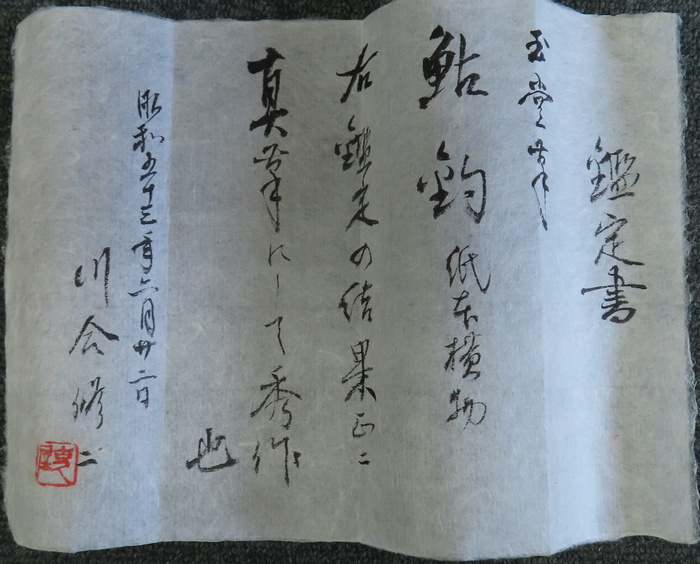 鑑定書
玉堂筆
鮎釣 紙本横物
右鑑定の結果正ニ
真筆にして秀作
也
昭和五十三年六月廿二日
川合修二